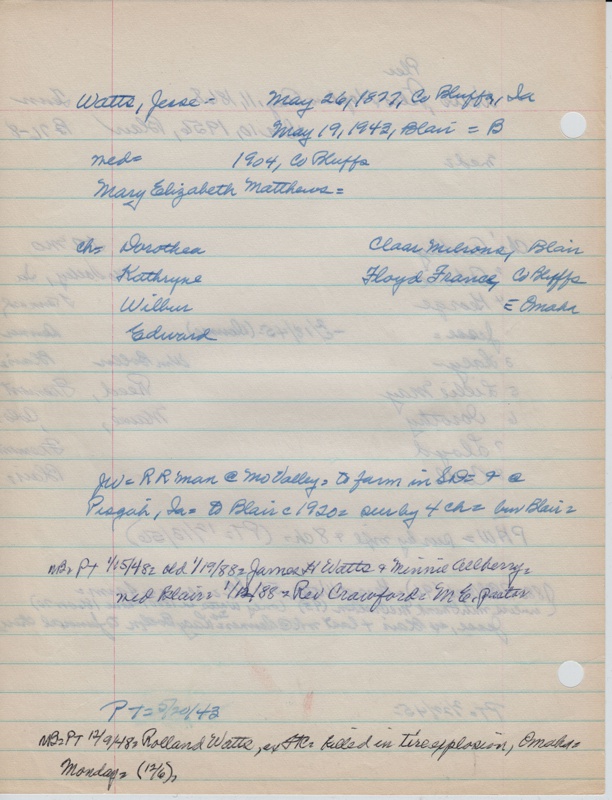 Watts, Jesse = May 26, 1877, Co Bluffs, Ia
May 19, 1942, Blair = B
med= 1904, Co Bluffs
Mary Elizabeth Matthews =
ch= Dorothea Claar Milrons, Blair
Kathryne Floyd France, Co Bluffs
Wilbur = Omaha
Edward
JW = RR man @ Mo Valley = to farm in SD = & @
Pisgah, Ia = to Blair c 1920 = sur by 4 ch = bur Blair =
NB = PT 1/15/48 = old 1/19/88 = James H Watts & Minnie Allberry =
med Blair = /88 = Rev Crawford = M E, pastor
PT = 5/20/43
NB = PT 12/9/48 = Rolland Watts, = killed in tire explosion, Omaha =
Monday = (12/6),